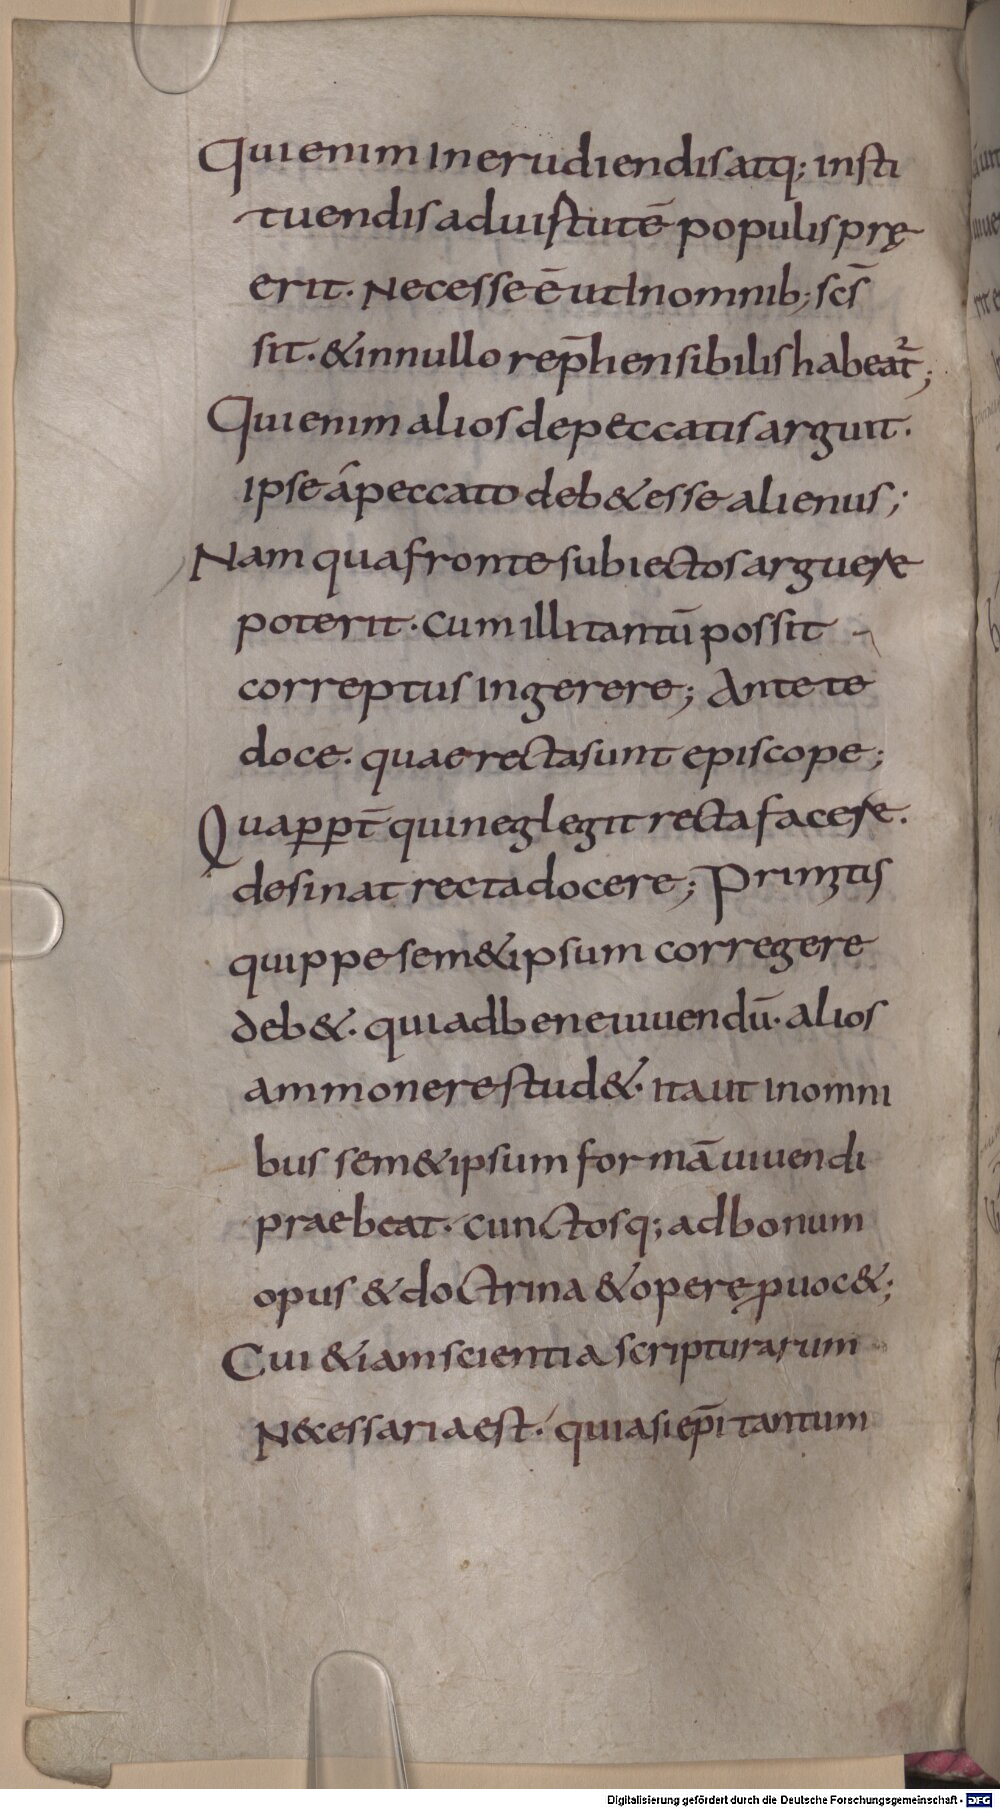 Qui enim in erudiendis atq; insti
tuendis ad uirtutē populis prę
erit. Necesse ē ut In omnib; scs̄
sit. & in nullo rep̄hensibilis habeat̄²;
Qui enim alios de peccatis arguit.
Ipse á peccato deb& esse alienus;
Nam qua fronte subiectos arguere
poterit. cum illi tantū possit
correptus ingerere; Ante te
doce. quae recta sunt episcope;
Quapp̄t qui neglegit recta facere.
desinat recta docere; Primitus
quippe sem&ipsum corregere
deb&. qui ad bene uiuendū. alios
ammonere stud&. ita ut in omni
bus sem&ipsum formā uiuendi
praebeat. cunctosq; ad bonum
opus & doctrina & opere ꝓuoc&;
Cui &iam scientia scripturarum
Necessaria est. quia si ep̄i tantum
Digitalisierung gefördert durch die Deutsche Forschungsgemeinschaft - DFG